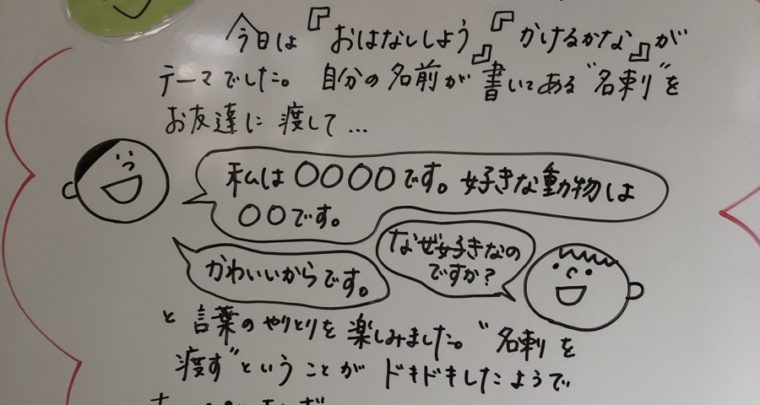 今日は『おはなししよう』『かけるかな』が
テーマでした。自分の名前が書いてある“名刺”を
お友達に渡して…
私は〇〇〇〇です。好きな動物は
〇〇です。
なぜ好きなの
ですか？
かわいいからです。
と言葉のやりとりを楽しみました。“名刺を
渡す”ということがドキドキしたようで